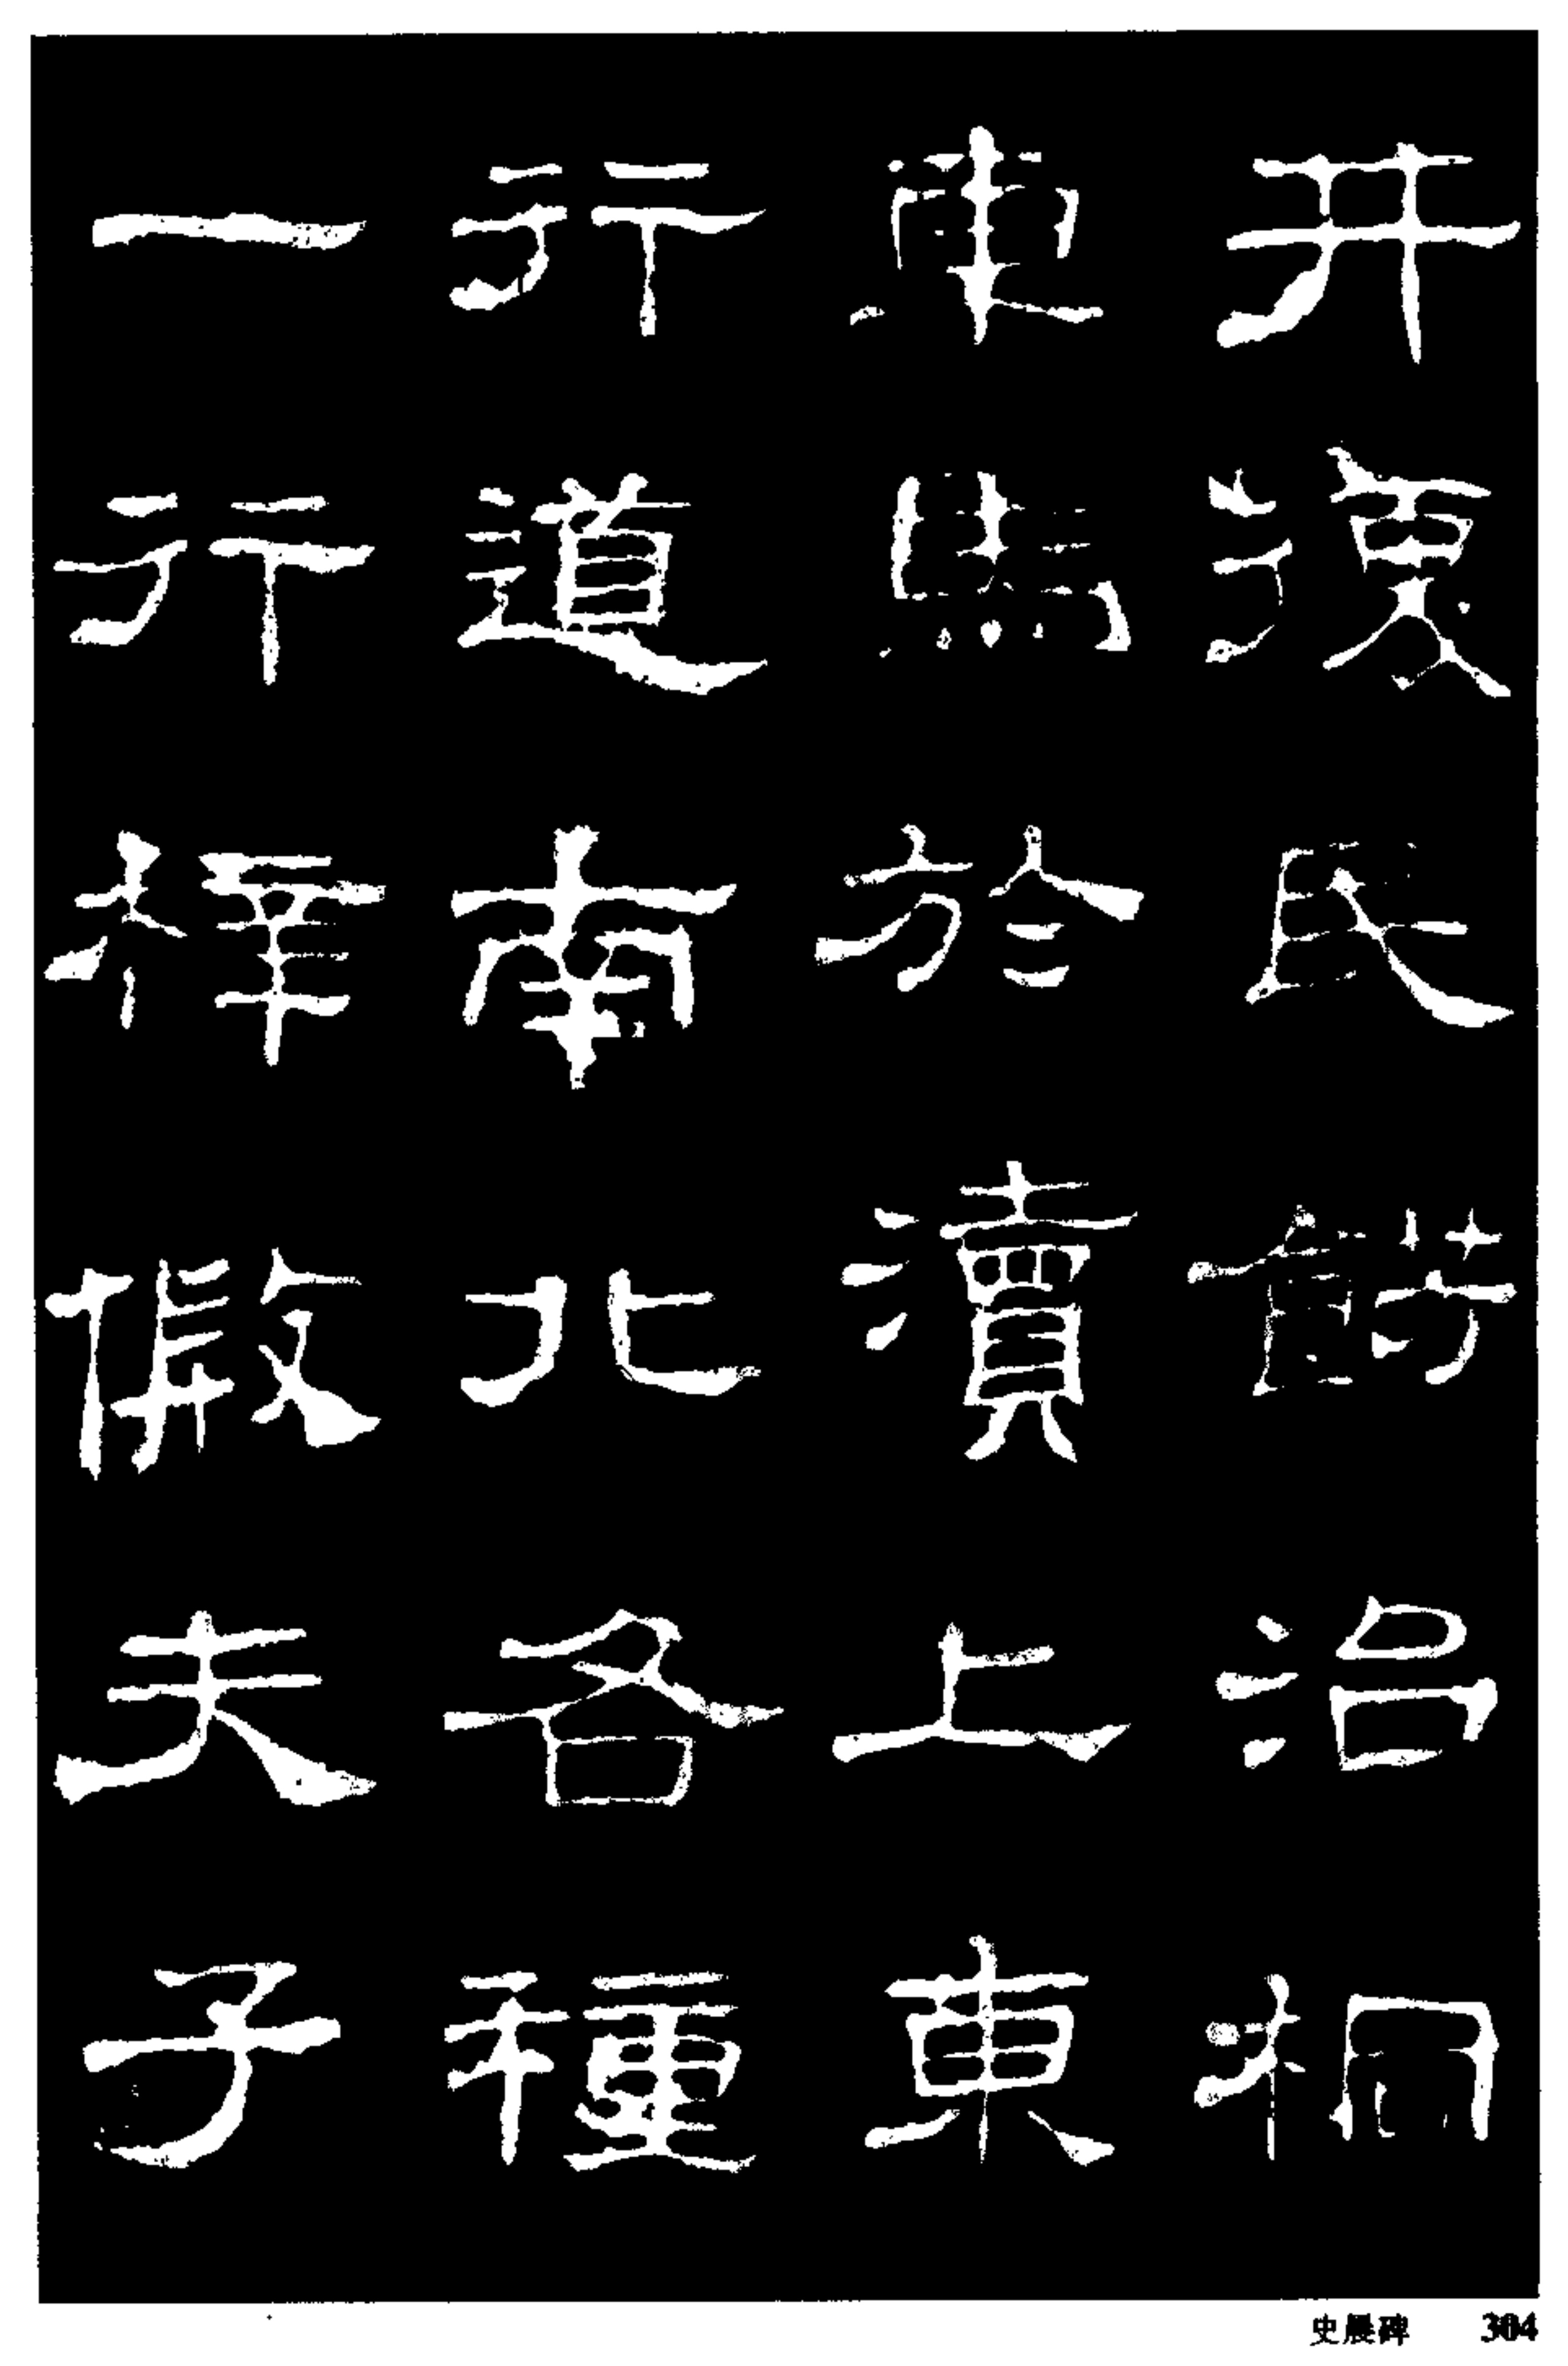 井復民餝治桐
車馬於瀆上東
行道南北各種
一行梓假夫子
史晨碑 304